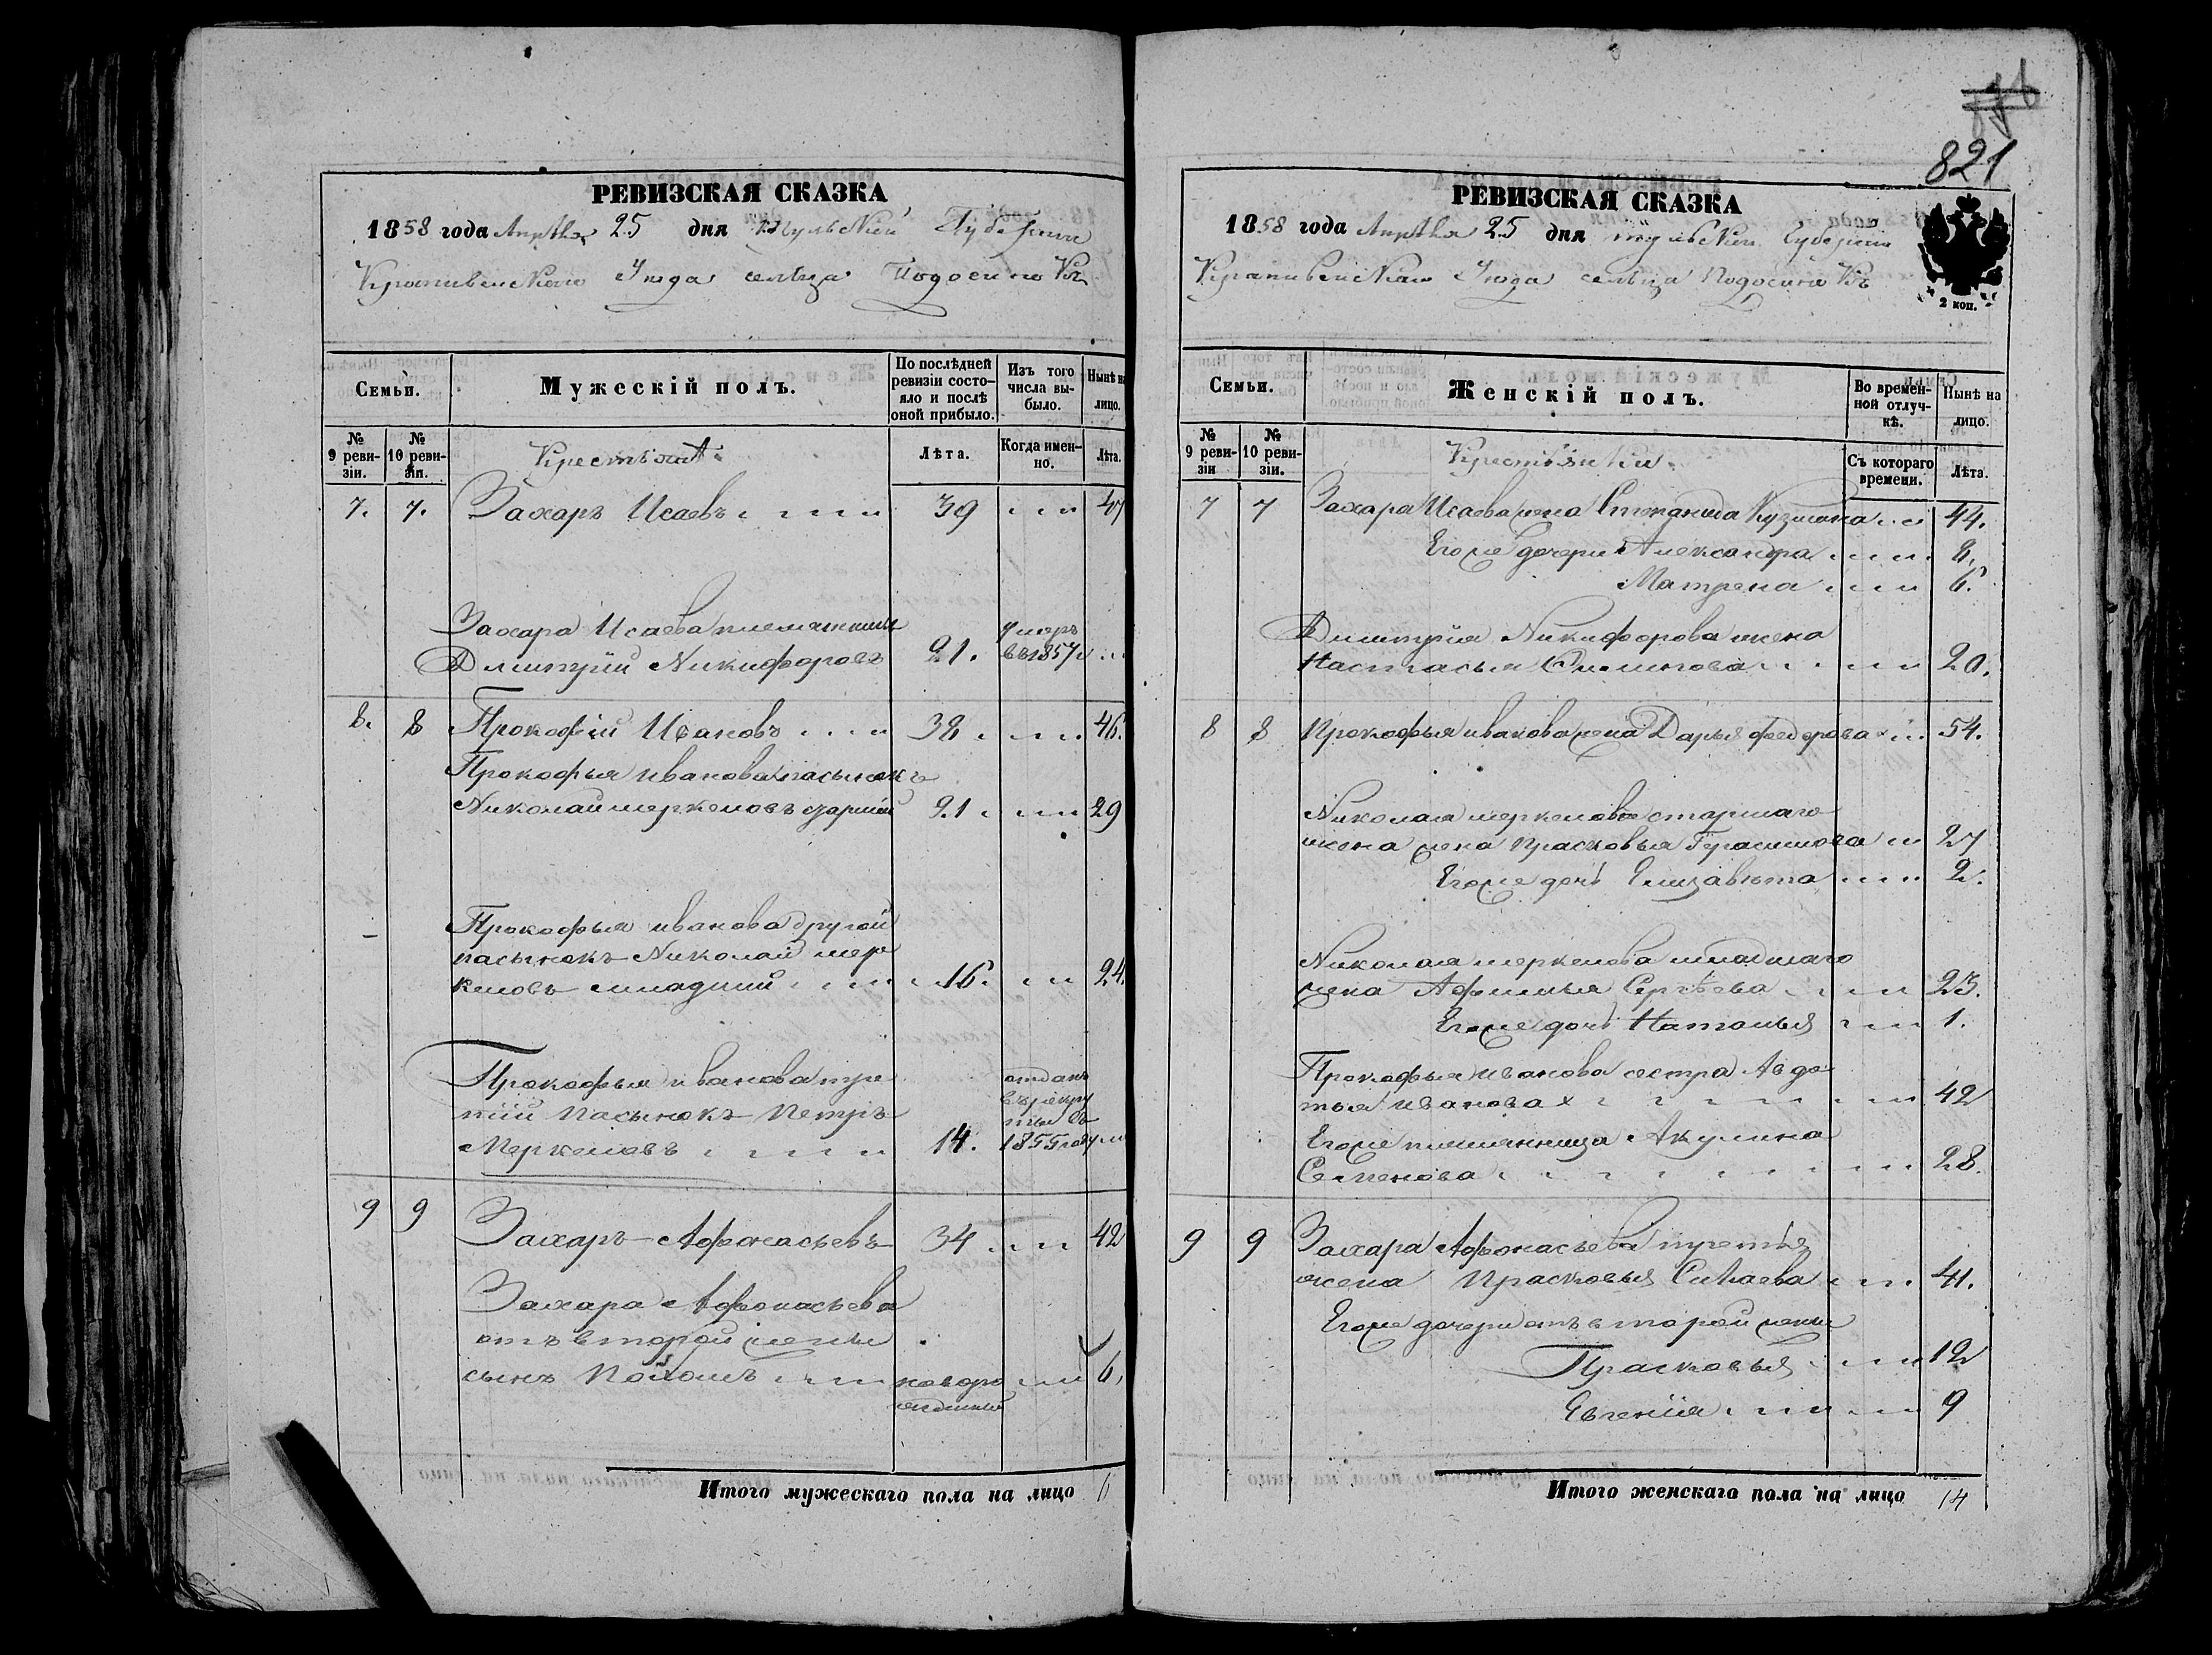 РЕВИЗСКАЯ СКАЗКА
1858 года Апрѣля 25 дня Тульской Губернии
Крапивенскаго Уѣзда сельца Подосинокъ
Семьи.
Мужескій полъ.
По послѣдней ревизіи состояло и послѣ оной прибыло.
Изъ того числа выбыло.
Нынѣ на лицо.
№ 9 ревизіи.
№ 10 ревизіи.
Крестьяне
Лѣта.
Когда именно.
Лѣта.
7. 7. Захаръ Исаевъ 39 47
Захара Исаева племянникъ
Дмитрий Никифоровъ 21. умеръ въ 1857
8. 8 Прокофій Ивановъ 38 46.
Прокофья Иванова пасынокъ
Николай Меркеловъ старший 21 29
Прокофья Иванова другой
пасынокъ Николай Мер
келовъ младший 16. 24.
Прокофья Иванова тре
тий пасынокъ Петръ
Меркеловъ 14. отданъ въ рекруты въ 1855 году
9 9 Захаръ Афонасьевъ 34 42
Захара Афонасьева
отъ второй жены
сынъ новорожденный 6,
Итого мужескаго пола на лицо 6
821
РЕВИЗСКАЯ СКАЗКА
1858 года Апрѣля 25 дня Тульской Губернии
Крапивенскаго Уѣзда сельца Подосинокъ
2 коп.
Семьи.
Женскій полъ.
Во временной отлучкѣ.
Нынѣ на лицо.
№ 9 ревизіи
№ 10 ревизіи.
Крестьянки
Съ котораго времени.
Лѣта.
7 7 Захара Исаева жена Степанида Кузмина 44.
Егоже дочери Александра 8.
Матрена 6.
Дмитрия Никифорова жена
Настасья 20.
8 8 Прокофья Иванова жена Дарья Федорова 54.
Николая Меркелова старшаго
жена жена Прасковья Герасимова 27
Егоже дочь Елизавѣта 2.
Николая Меркелова младшаго
жена Афимья Сергѣева 23.
Егоже дочь Наталья 1.
Прокофья Иванова сестра Авдо
тья Иванова 42
Егоже племянница Акулина
Семенова 28.
9 9 Захара Афонасьева третья
жена Прасковья 41.
Егоже дочери отъ второй жены
Прасковья 12
Евгения 9
Итого женскаго пола на лицо 14